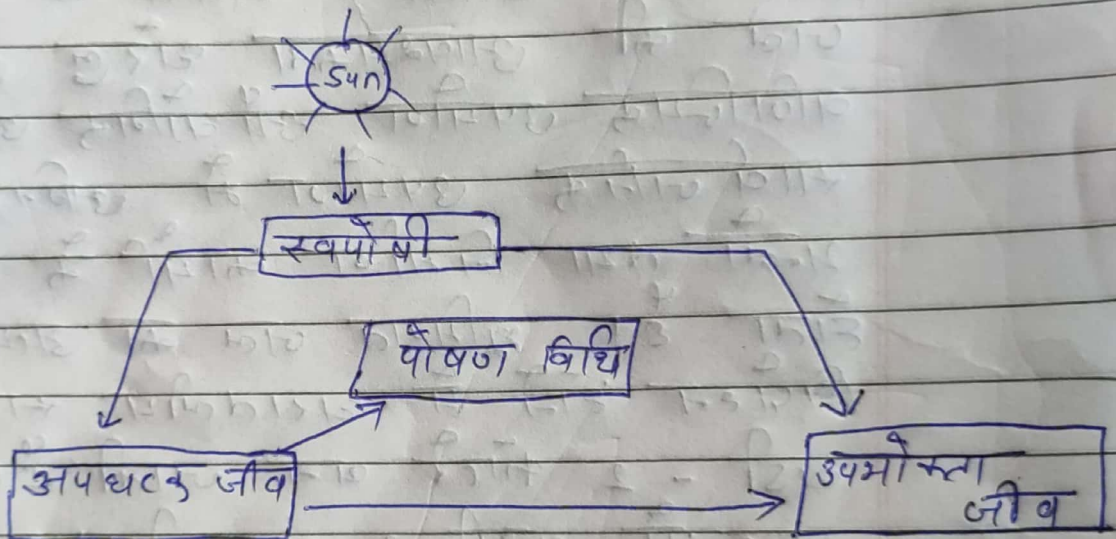 Sun
स्वपोषी
पोषण विधि
अपघटक जीव
उपभोक्ता
जीव